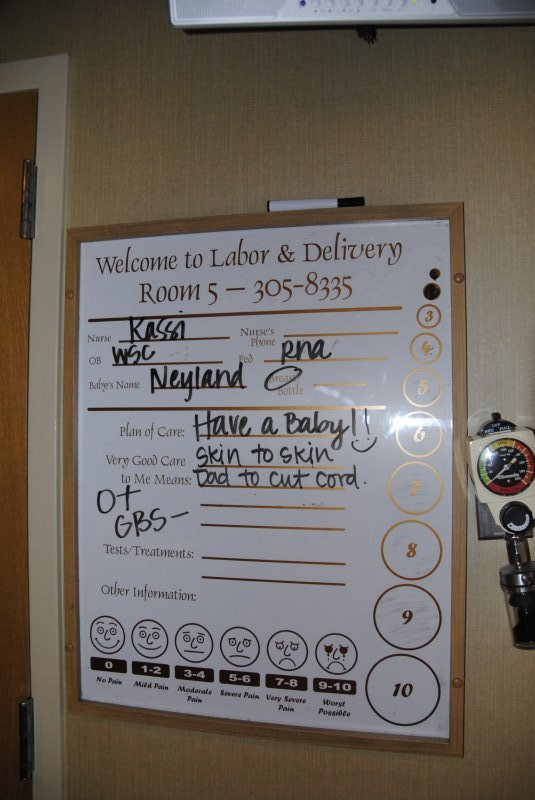 Welcome to Labor & Delivery
Room 5 — 305-8335
Nurse Kassi Nurse's Phone
OB WSC Ped RNA
Baby's Name Neyland Breast Bottle
Plan of Care: Have a Baby!!
Very Good Care to Me Means: Skin to skin
Dad to cut cord.
O+
GBS-
Tests/Treatments:
Other Information:
0 1-2 3-4 5-6 7-8 9-10
No Pain Mild Pain Moderate Pain Severe Pain Very Severe Pain Worst Possible
3
4
5
6
7
8
9
10